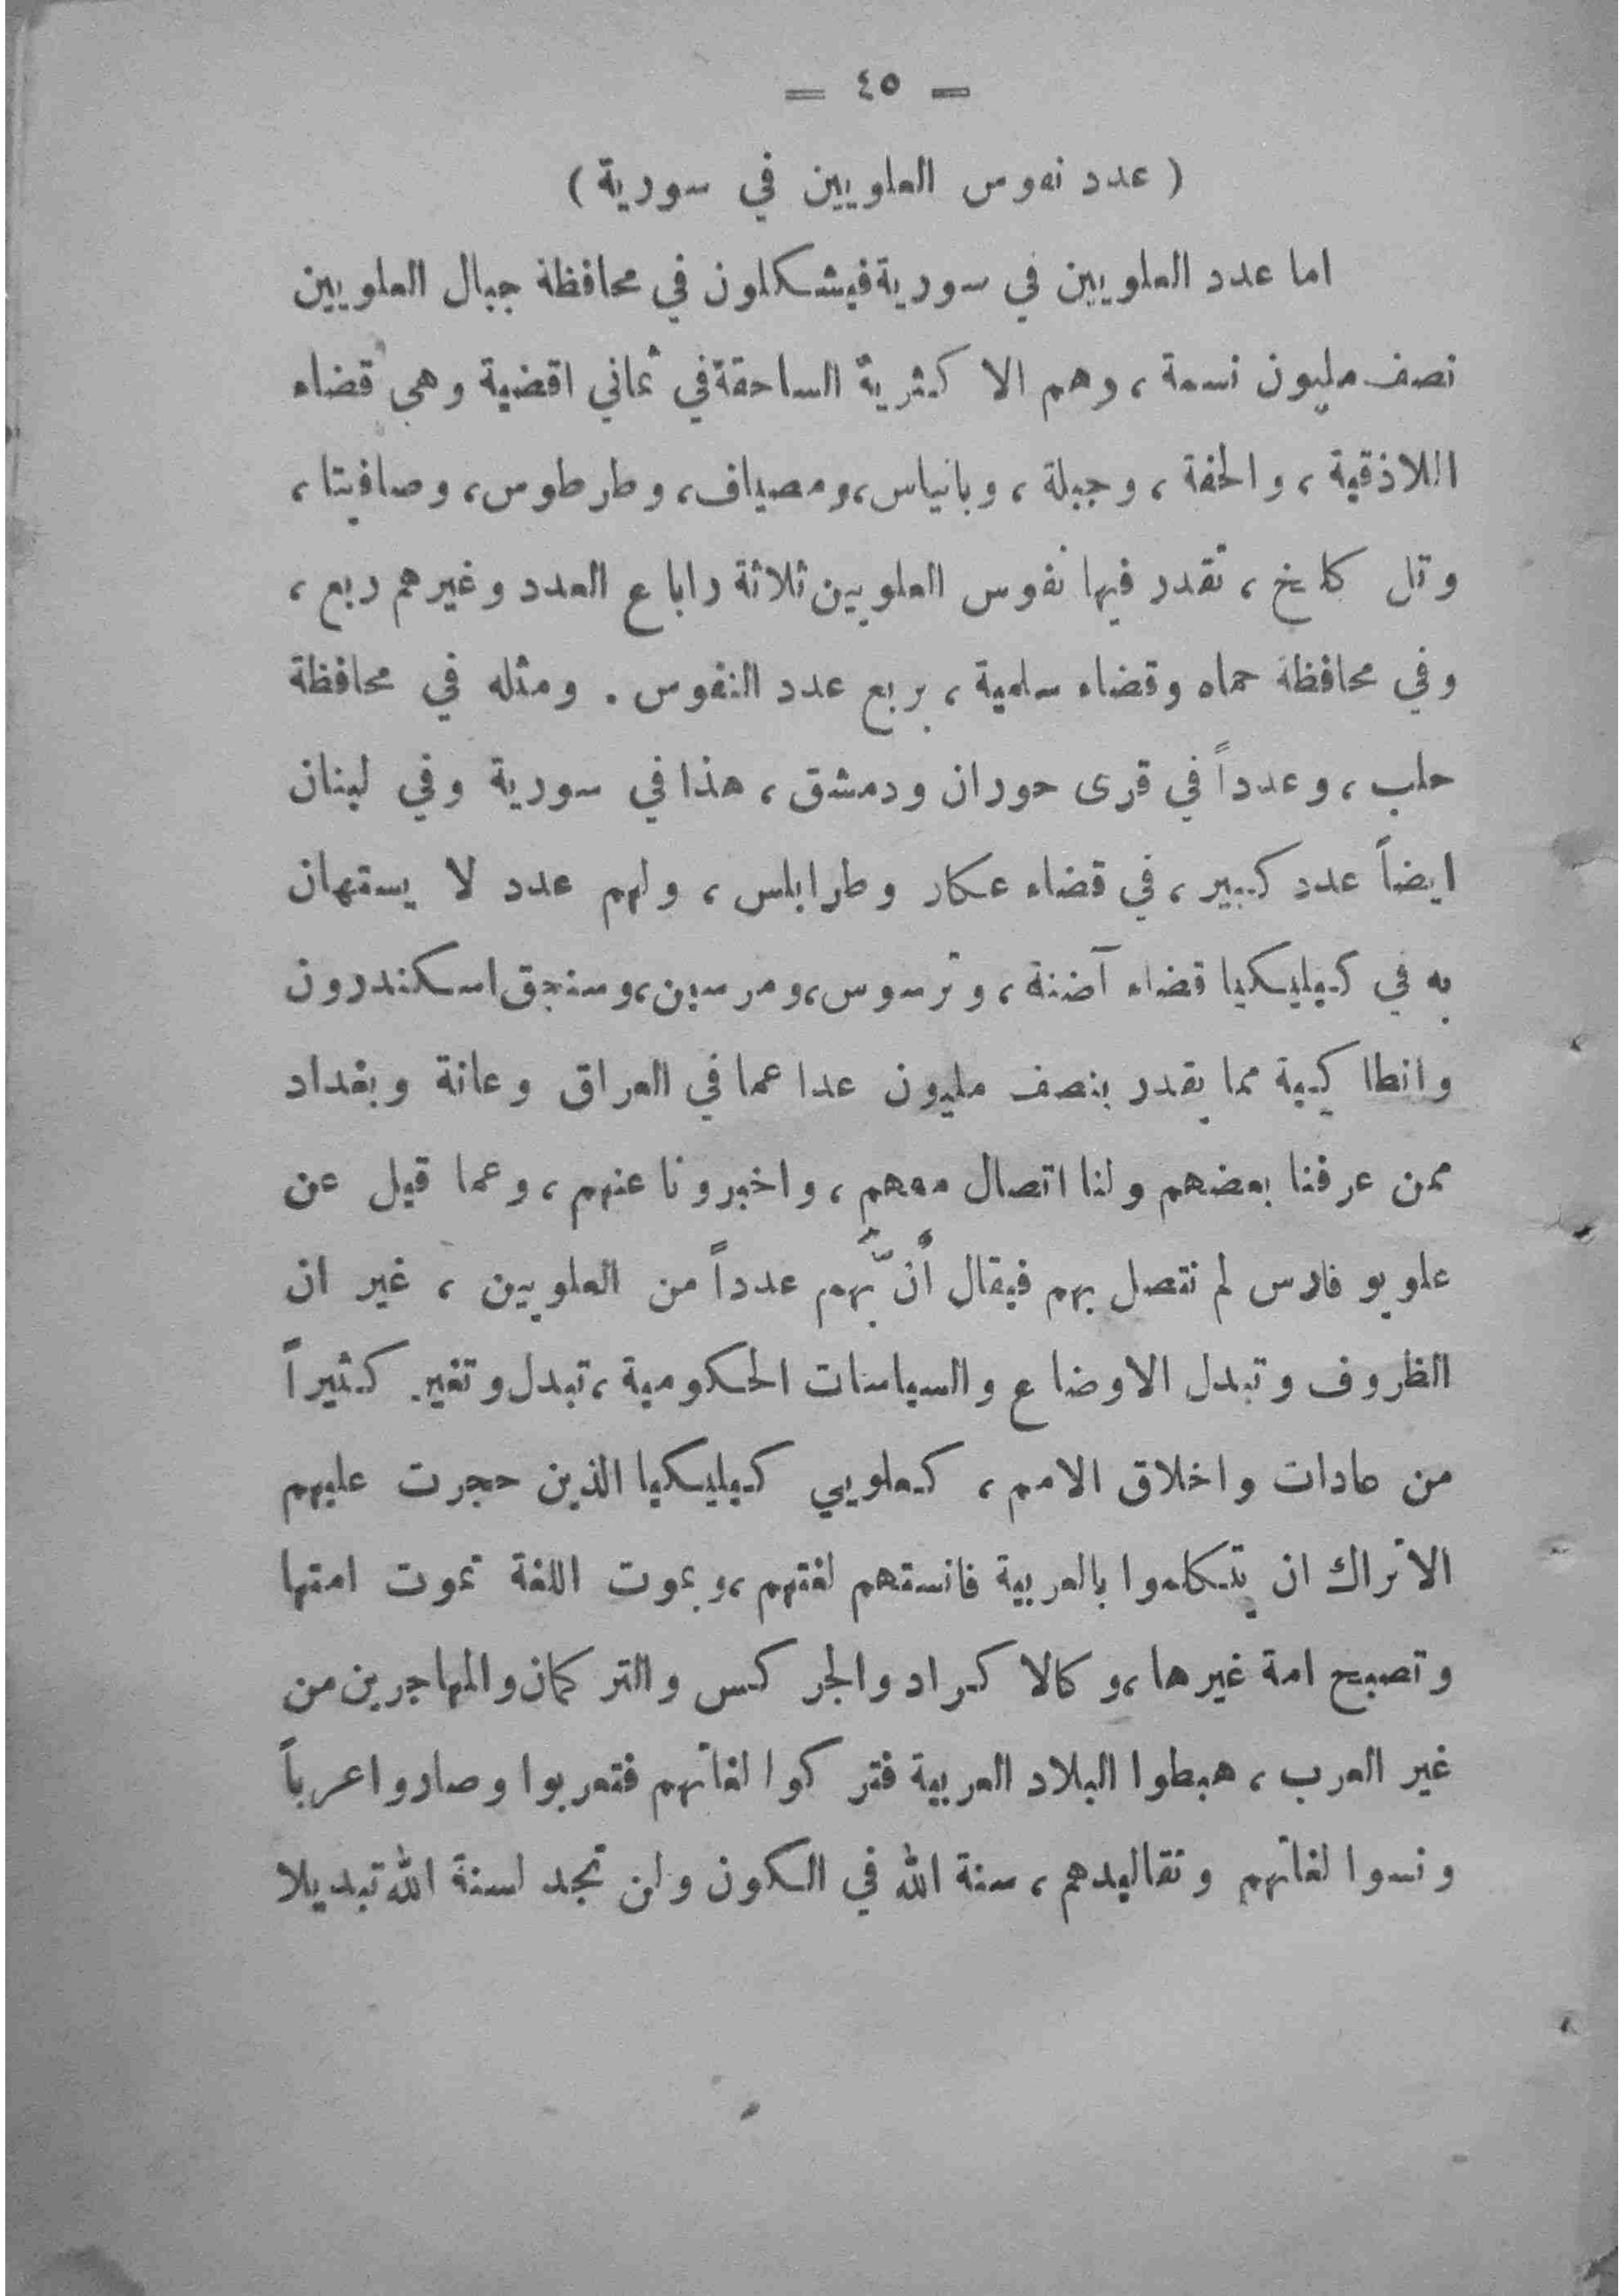 — ٤٥ =
( عدد نفوس العلويين في سورية )
اما عدد العلويين في سورية فيشكلون في محافظة جبال العلويين
نصف مليون نسمة ، وهم الاكثرية الساحقة في ثماني اقضية وهي قضاء
اللاذقية ، والحفة ، وجبلة ، وبانياس، ومصياف، وطرطوس، وصافيتا ،
وتل كلخ ، تقدر فيها نفوس العلويين ثلاثة راباع العدد وغيرهم ربع ،
وفي محافظة حماه وقضاء سلمية ، بربع عدد النفوس . ومثله في محافظة
حلب ، وعدداً في قرى حوران ودمشق ، هذا في سورية وفي لبنان
ايضاً عدد كبير ، في قضاء عكار وطرابلس ، ولهم عدد لا يستهان
به في كيليكيا قضاء آضنة ، وترسوس، ومرسين، وسنجق اسكندرون
وانطاكية مما يقدر بنصف مليون عدا عما في العراق وعانة وبغداد
ممن عرفنا بعضهم ولنا اتصال معهم ، واخبرونا عنهم ، وعما قيل عن
علويو فارس لم نتصل بهم فيقال أنّ بهم عدداً من العلويين ، غير ان
الظروف وتبدل الاوضاع والسياسات الحكومية ، تبدل وتغير كثيراً
من عادات واخلاق الامم ، كعلويي كيليكيا الذين حجرت عليهم
الاتراك ان يتكلموا بالعربية فانستهم لغتهم ، وبموت اللغة تموت امتها
وتصبح امة غيرها ، وكالاكراد والجركس والتركمان والمهاجرين من
غير العرب ، هبطوا البلاد العربية فتركوا لغاتهم فتعربوا وصاروا عرباً
ونسوا لغاتهم وتقاليدهم ، سنة الله في الكون ولن تجد لسنة الله تبديلا